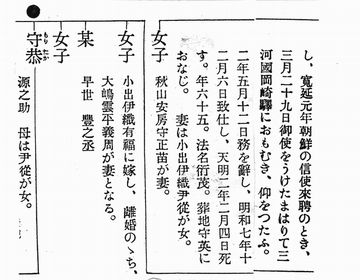 し、寛延元年朝鮮の信使來聘のとき、
三月二十九日御使をうけたまはりて三
河國岡崎驛におもむき、仰をつたふ。
二年五月十二日務を辭し、明和七年十
二月六日致仕し、天明二年二月四日死
す。年六十五。法名衍茂。葬地守英に
おなじ。 妻は小出伊織尹從が女。
女子 秋山安房守正苗が妻。
女子 小出伊織有福に嫁し、離婚のゝち、
大嶋雲平義周が妻となる。
某 早世 豐之丞
女子
守恭 もりたか
源之助 母は尹從が女。